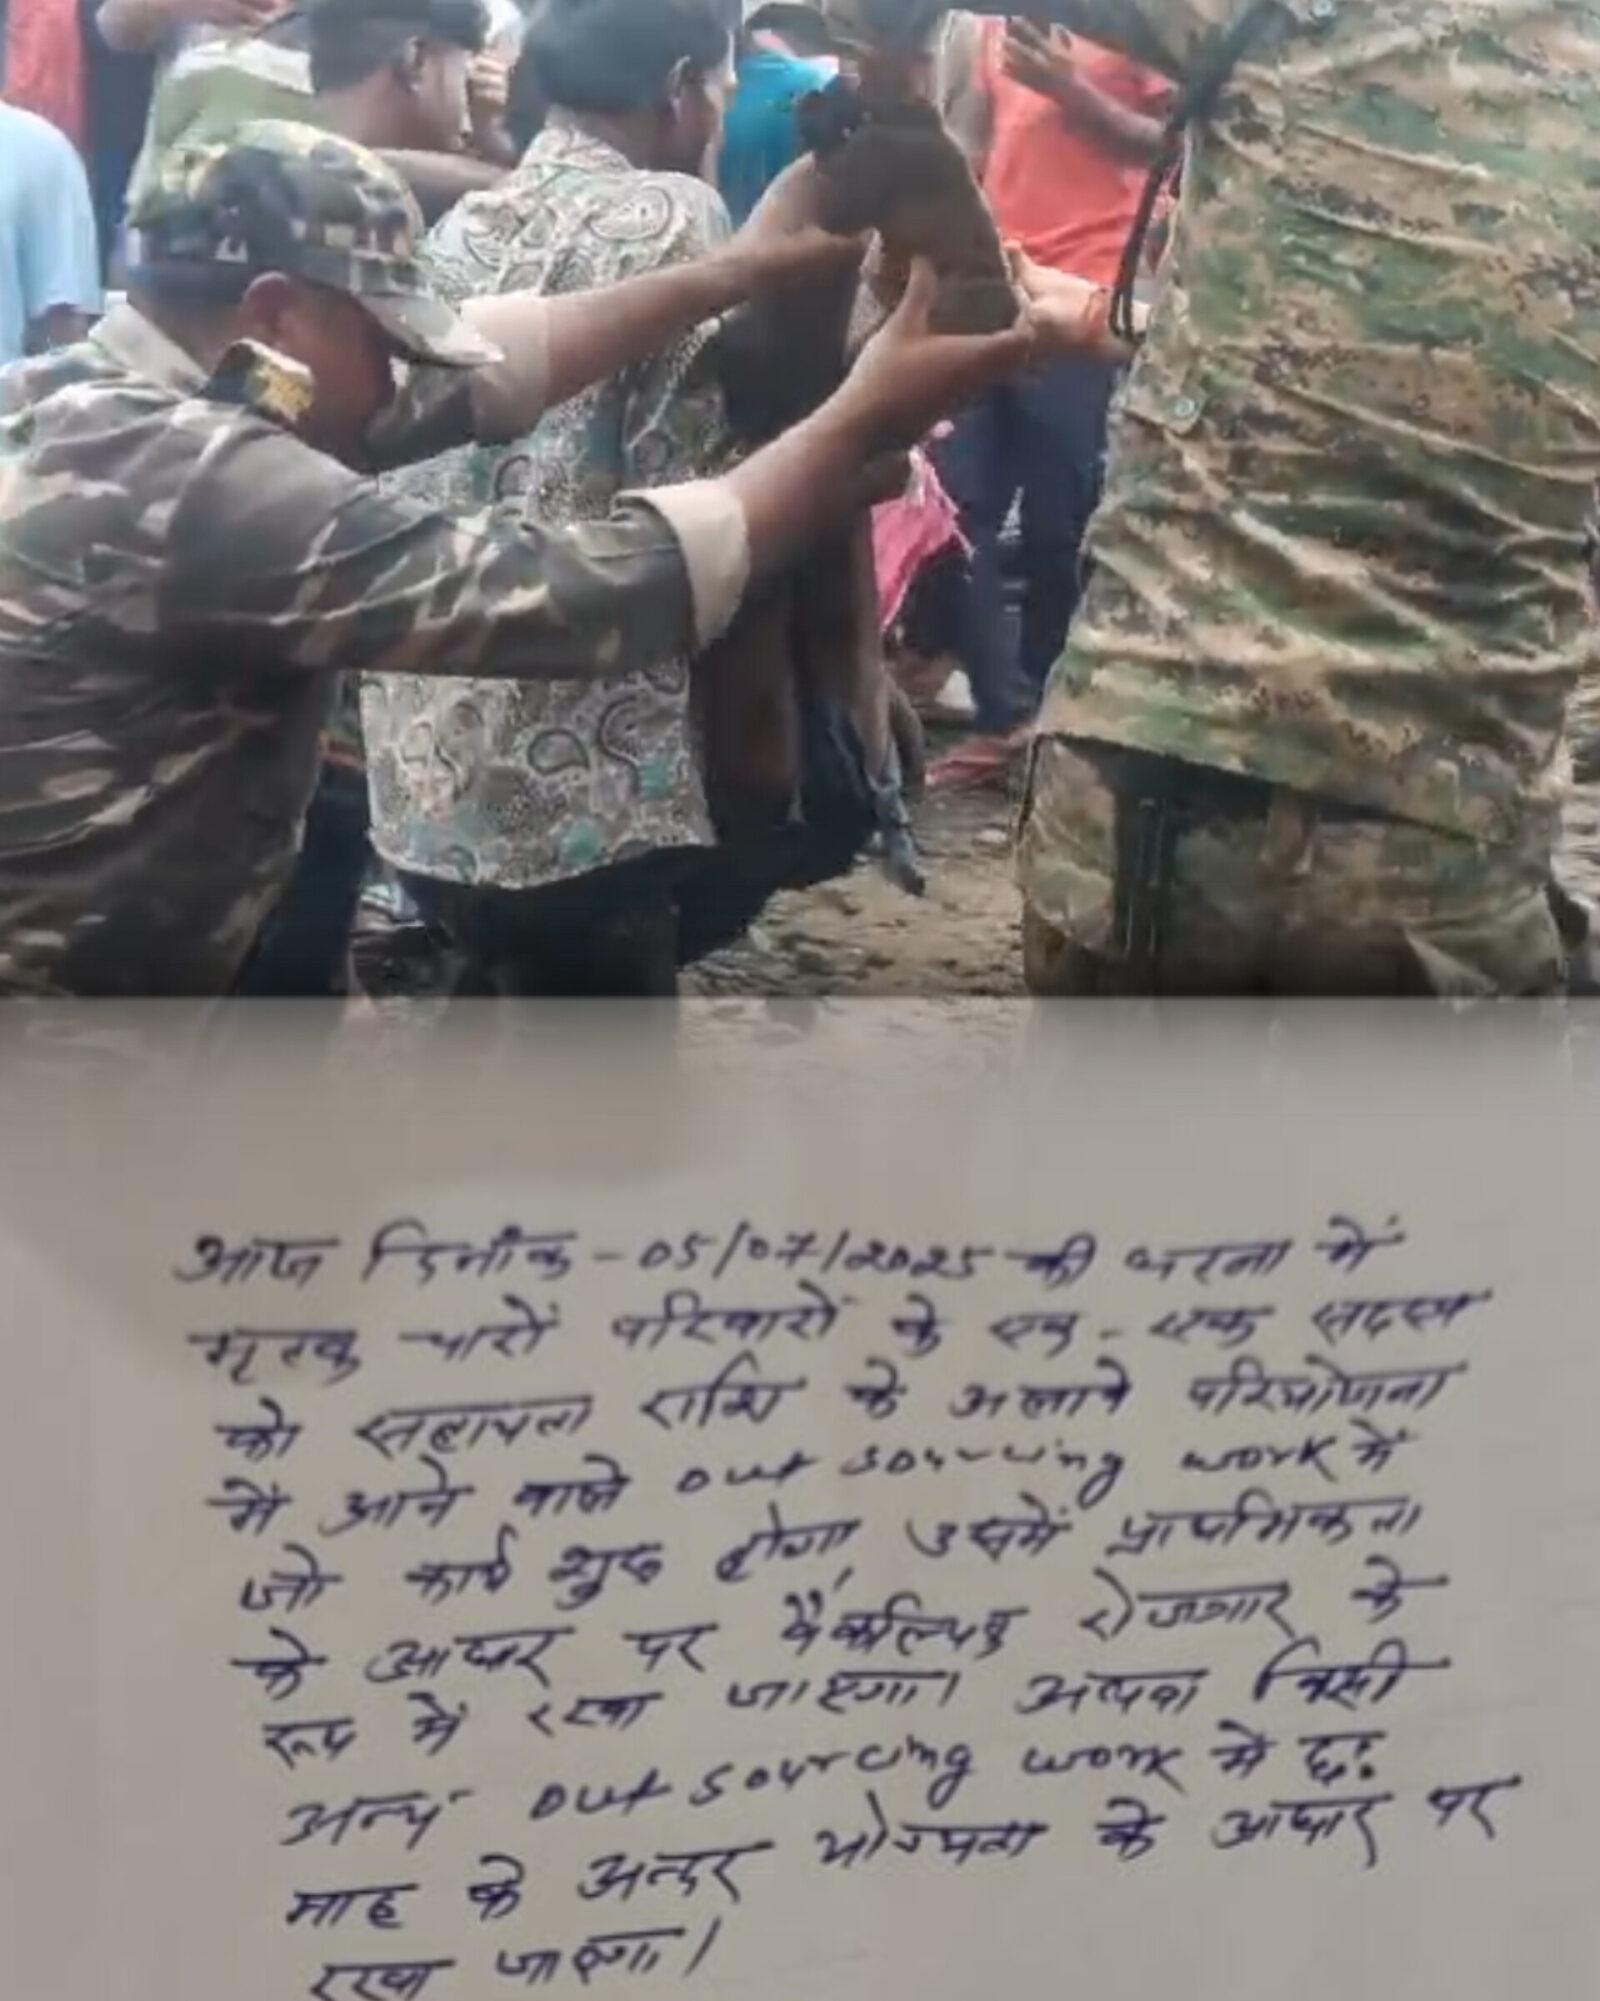 आज दिनांक - 05/07/2025 की घटना में
मृतक चारों परिवारों के एक - एक सदस्य
को सहायता राशि के अलावे परियोजना
में आने वाले out sourcing work में
जो कार्य शुरू होगा, उसमें प्राथमिकता
के आधार पर वैकल्पिक रोजगार के
रूप में रखा जाएगा। अथवा किसी
अन्य out sourcing work में छः
माह के अन्दर योग्यता के आधार पर
रखा जाएगा।